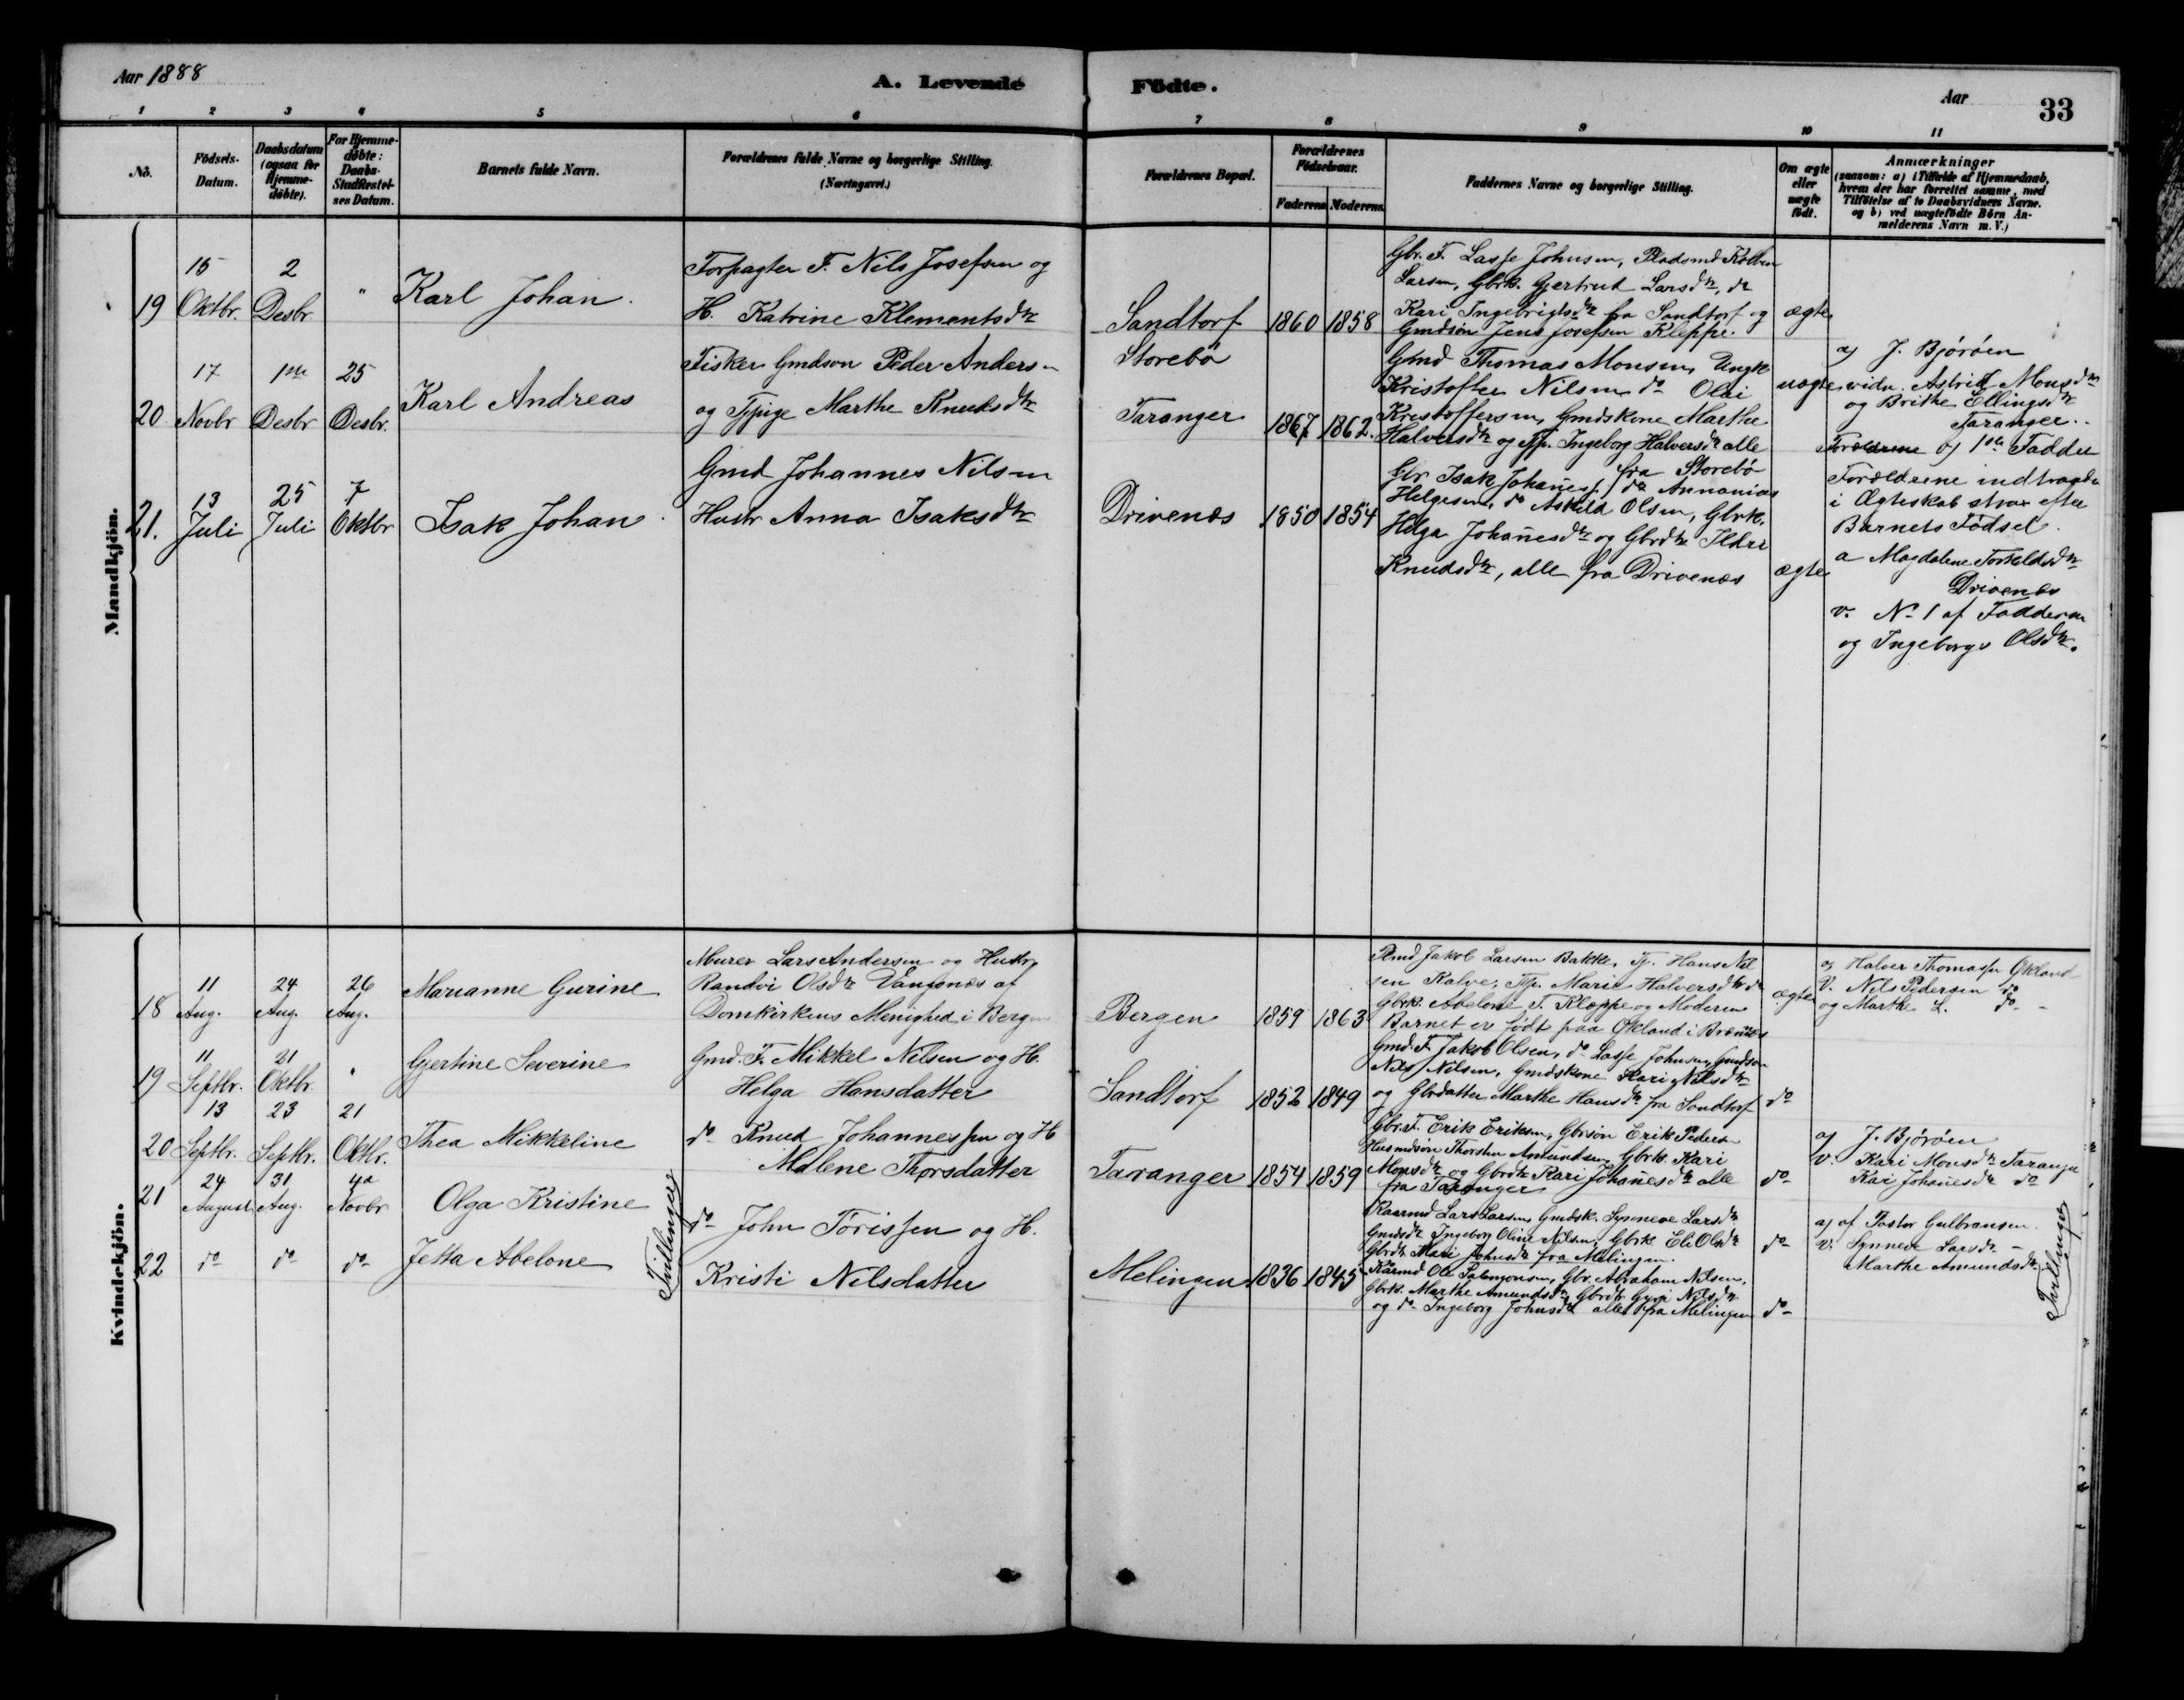 Aar 1888
A. Levende
Födte.
Aar
33
1 2 3 4 5 6 7 8 9 10 11
No.
Födsels-Datum.
Daabsdatum (ogsaa for Hjemme-döbte).
For Hjemme-döbte: Daabs-Stadfæstel-ses Datum.
Barnets fulde Navn.
Forældrenes fulde Navne og borgerlige Stilling. (Næringsvei.)
Forældrenes Bopæl.
Forældrenes Födselsaar.
Faderens Moderens
Faddernes Navne og borgerlige Stilling.
Om ægte eller uægte födt.
Anmærkninger
(saasom: a) i Tilfælde af Hjemmedaab,
hvem der har forrettet samme, med
Tilföielse af to Daabsvidners Navne.
og b) ved uægtefödte Börn An-
melderens Navn m. V.)
Mandkjön.
19
15 Oktbr.
2 Desbr.
"
Karl Johan.
Forpagter F. Nils Josefsen og
H. Katrine Klementsdtr
Sandtorf
1860 1858
Gbr. F. Lasse Johnsen, Pladsmd
Larsen, Gbrk. Gjertrud Larsdtr, do
Kari Ingebrigtsdtr fra Sandtorf og
Gmdsön Jens Josefsen Kleppe.
ægte
20
17 Novbr
1ste Desbr
25 Desbr.
Karl Andreas
Fisker Gmdson Peder Anders-
og Tjpige Marthe Knudsdtr
Storebø
Taranger
1867 1862.
Gmd Thomas Monsen, Ungk
Kristoffer Nilsen do Olai
Kristoffersen, Gmdskone Marthe
Halversdtr og Tjp. Ingeborg Halversdtr alle
fra Storebø
uægte
a) J. Bjøröen
vidn. Astrid Monsdtr
og Brithe Ellingsdtr
Taranger.
Forældrene og 1ste Fadder
Forældrene indtraadte
i Ægteskab strax efter
Barnets Födsel.
21.
13 Juli
25 Juli
7 Oktbr
Isak Johan.
Gmd Johannes Nilsen
Hustr Anna Isaksdtr
Drivenæs
1850 1854
Gbr. Isak Johanes, do Annanias
Helgesen, do Askild Olsen, Gbrk.
Helga Johanesdtr og Gbrdtr Ildri
Knudsdtr, alle fra Drivenæs
ægte
a Magdalene Torkeldsdtr
Drivenæs
v. No 1 af Fadderne
og Ingeborg Olsdtr.
Kvindekjön.
18
11 Aug.
24 Aug.
26 Aug.
Marianne Gurine
Murer Lars Andersen og Hustr
Randvi Olsdtr Vangsnæs af
Domkirkens Menighed i Bergen
Bergen
1859 1863
Pmd Jakob Larsen Bakke, Tj. Hans Nil
sen Kalve, Tjp. Marie Halversdtr do
Gbrk. Abelone T. Kleppe og Moderen
Barnet er født paa Økland i Bremnes
ægte
a) Halvor Thomassen Økland
V. Nils Pedersen do
og Marthe L. do -
19
11 Septbr.
21 Oktbr.
"
Gjertine Severine
Gmd. F. Mikkel Nilsen og H.
Helga Hansdatter
Sandtorf
1852 1849
Gmd. F. Jakob Olsen, do Lasse Johnsen, Gmdsøn
Nils Nilsen, Gmdskone Kari Nilsdtr
og Gbrdatter Marthe Hansdtr fra Sandtorf
do
20
13 Septbr.
23 Septbr.
21 Oktbr.
Thea Mikkeline
do Knud Johannessen og H
Malene Thorsdatter
Taranger
1854 1859
Gbr. F. Erik Eriksen, Gbrsön Erik Pedersen
Husmdsön Thorsten Amundsen, Gbrk. Kari
Monsdtr og Gbrdtr Kari Johanesdtr alle
fra Taranger
do
a) J. Bjøröen
V. Kari Monsdtr Taranger
Kari Johanesdtr do
21
24 August
31 Aug.
4de Novbr
Olga Kristine
Tvillinger
do John Torissen og H.
Kristi Nilsdatter
Melingen
1836 1845
Kaarmd Lars Larsen, Gmdsk. Synneve Larsdtr
Gmdsdtr Ingeborg Oline Nilsen, Gbrk Eli Olsdtr
Gbrdtr Mari Johnsdtr fra Melingen.
do
a) af Pastor Gulbransen.
V. Synneve Larsdtr -
Marthe Amundsdtr
Tvillinger
22
do
do
do
Jetta Abelone
Kårmd Ole Salomonsen, Gbr. Abraham Nilsen,
Gbrk. Marthe Amundsdtr, Gbrdtr Guri Nilsdtr
og do Ingeborg Johnsdtr alle fra Melingen
do